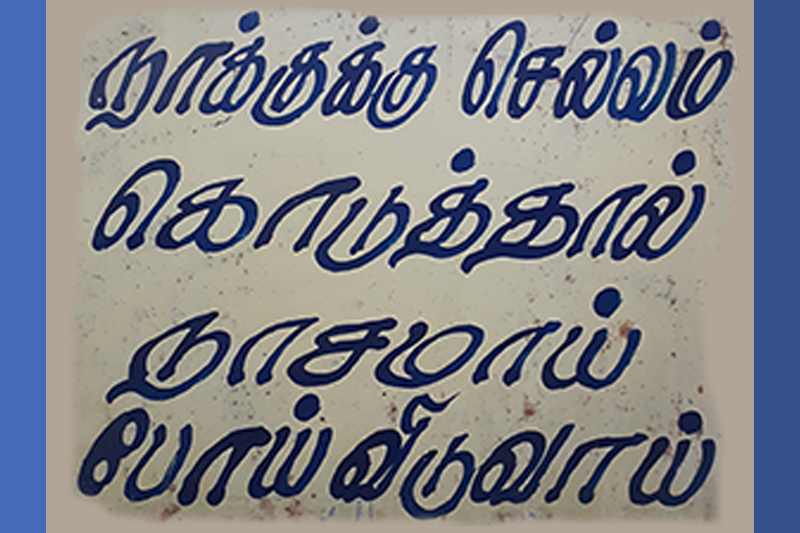 நாக்குக்கு செல்லம்
கொடுத்தால்
நாசமாய்
போய் விடுவாய்